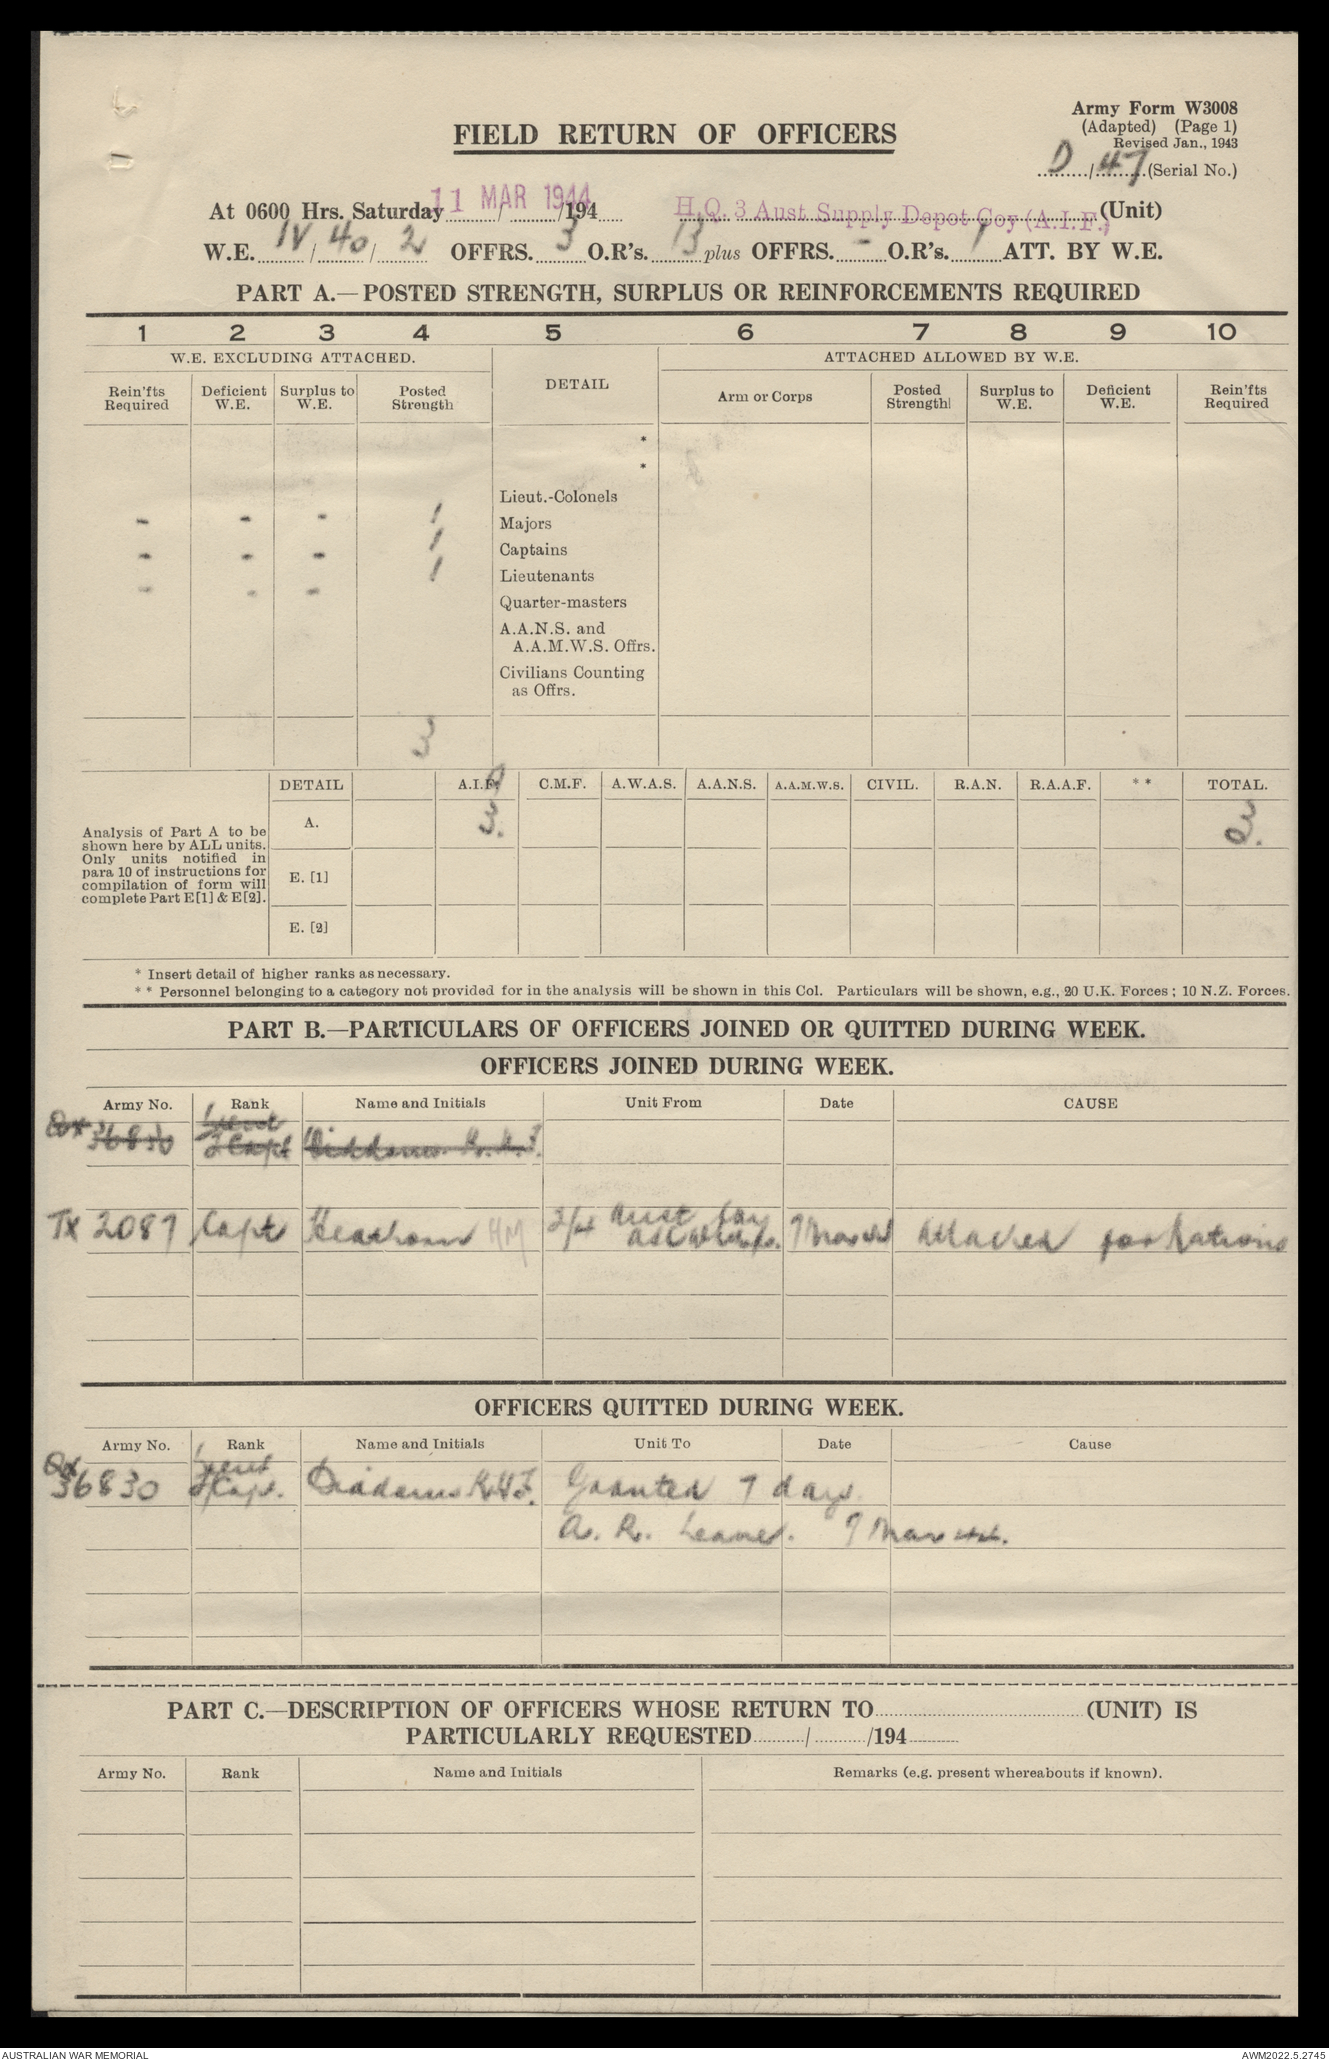 Army Form W3008
(Adapted) (Page 1)
Revised Jan., 1943
FIELD RETURN OF OFFICERS
D/47 (Serial No.)
At 0600 Hrs. Saturday 11 MAR 1944 /194 H.Q. 3 Aust Supply Depot Coy (A.I.F.) (Unit)
W.E. IV/40/2 OFFRS. 3 O.R's. 13 plus OFFRS. - O.R's. 1 ATT. BY W.E.
PART A.—POSTED STRENGTH, SURPLUS OR REINFORCEMENTS REQUIRED
1 2 3 4 5 6 7 8 9 10
W.E. EXCLUDING ATTACHED. DETAIL ATTACHED ALLOWED BY W.E.
Rein'fts Required Deficient W.E. Surplus to W.E. Posted Strength Arm or Corps Posted Strength Surplus to W.E. Deficient W.E. Rein'fts Required
*
*
Lieut.-Colonels
- - - 1 Majors
- - - 1 Captains
- - - 1 Lieutenants
Quarter-masters
A.A.N.S. and
A.A.M.W.S. Offrs.
Civilians Counting
as Offrs.
3
DETAIL A.I.F. C.M.F. A.W.A.S. A.A.N.S. A.A.M.W.S. CIVIL. R.A.N. R.A.A.F. ** TOTAL.
Analysis of Part A to be
shown here by ALL units.
Only units notified in
para 10 of instructions for
compilation of form will
complete Part E[1] & E[2].
A. 3. 3.
E. [1]
E. [2]
* Insert detail of higher ranks as necessary.
** Personnel belonging to a category not provided for in the analysis will be shown in this Col. Particulars will be shown, e.g., 20 U.K. Forces; 10 N.Z. Forces.
PART B.—PARTICULARS OF OFFICERS JOINED OR QUITTED DURING WEEK.
OFFICERS JOINED DURING WEEK.
Army No. Rank Name and Initials Unit From Date CAUSE
Qx 36830 Lieut T/Capt Diddams K.H.J.
TX 2087 Capt HM 2/4 Aust 7 Mar 44 Attached for Rations
OFFICERS QUITTED DURING WEEK.
Army No. Rank Name and Initials Unit To Date Cause
Qx 36830 Lieut T/Capt. Diddams K.H.J. Granted 7 days
A. R. Leave. 7 Mar 44.
PART C.—DESCRIPTION OF OFFICERS WHOSE RETURN TO (UNIT) IS
PARTICULARLY REQUESTED / /194
Army No. Rank Name and Initials Remarks (e.g. present whereabouts if known).
AUSTRALIAN WAR MEMORIAL AWM2022.5.2745